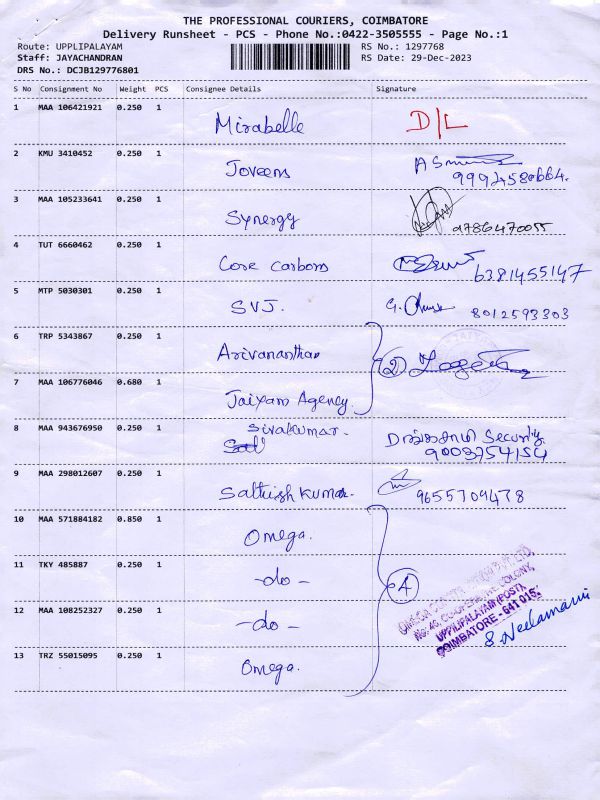 THE PROFESSIONAL COURIERS, COIMBATORE
Delivery Runsheet - PCS - Phone No.:0422-3505555 - Page No.:1
Route: UPPLIPALAYAM RS No.: 1297768
Staff: JAYACHANDRAN RS Date: 29-Dec-2023
DRS No.: DCJB129776801
S No Consignment No Weight PCS Consignee Details Signature
1 MAA 106421921 0.250 1 Mirabelle D/L
2 KMU 3410452 0.250 1 Joveens
9994580664.
3 MAA 105233641 0.250 1 Synergy 9786470055
4 TUT 6660462 0.250 1 Core carbons 6381455147
5 MTP 5030301 0.250 1 SVJ. 8012593303
6 TRP 5343867 0.250 1 Arivananthan
2
7 MAA 106776046 0.680 1 Jaiyam Agency.
8 MAA 943676950 0.250 1 Sivakumar. Security
9003754154
9 MAA 298012607 0.250 1 Sathish Kumar. 9655709478
10 MAA 571884182 0.850 1 Omega.
11 TKY 485887 0.250 1 -do-
4
12 MAA 108252327 0.250 1 -do-
13 TRZ 55015095 0.250 1 Omega.
NO. 46, CO-OPERATIVE COLONY,
UPPILIPALAYAM (POST),
COIMBATORE - 641 015.
S. Neelamani